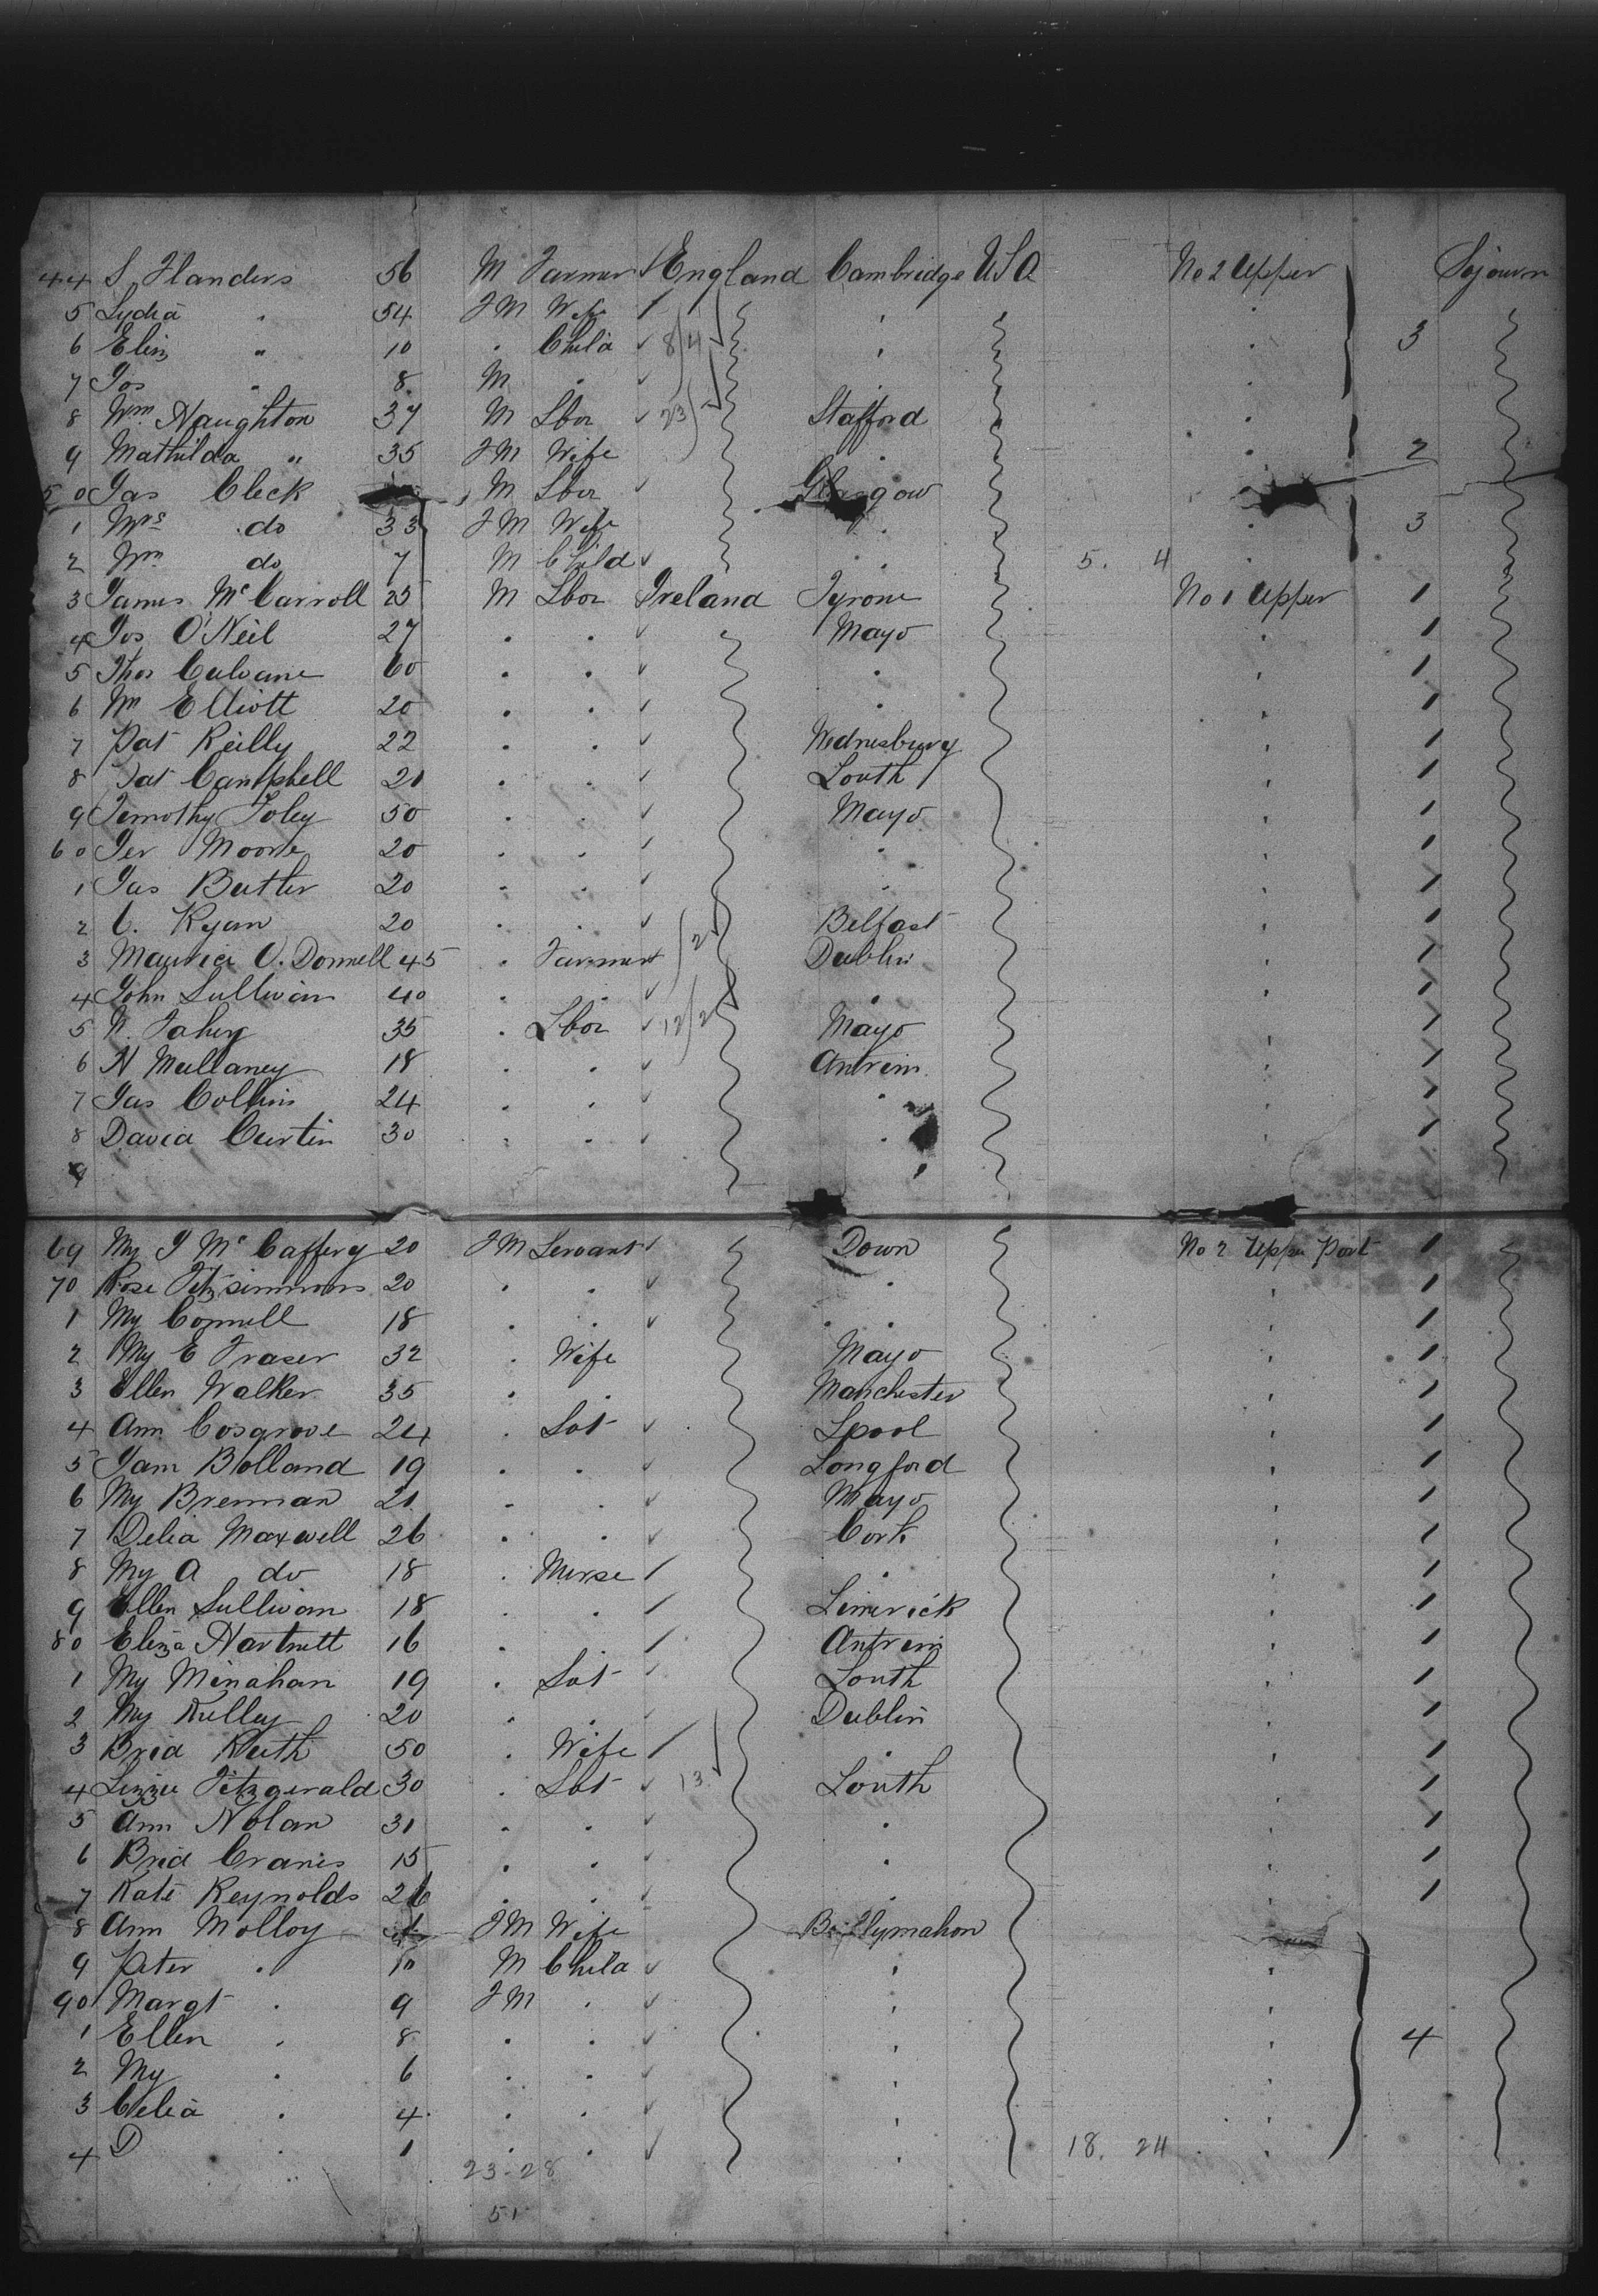 44 S Flanders 56 M Farmer England Cambridge USA No 2 Upper Sojourn
5 Lydia " 54 FM Wife
6 Eliz " 10 " Child 8/4 3
7 Jos " 8 M "
8 Wm Naughton 37 M Lbor 23 Stafford
9 Mathilda " 35 FM Wife " 2
50 Jas Cleck M Lbor Glasgow
1 Mrs do 33 FM Wife " 3
2 Wm do 7 M Child " 5. 4
3 James McCarroll 25 M Lbor Ireland Tyrone No 1 Upper 1
4 Jos O'Neil 27 " " Mayo " 1
5 Thos Culvane 60 " " " " 1
6 Wm Elliott 20 " " " " 1
7 Pat Reilly 22 " " Wednesbury " 1
8 Pat Campbell 21 " " Louth " 1
9 Timothy Foley 50 " " Mayo " 1
60 Jer Moore 20 " " " " 1
1 Jas Butler 20 " " " " 1
2 C. Ryan 20 " " Belfast " 1
3 Maurice O. Donnell 45 " Farmer 2 Dublin " 1
4 John Sullivan 40 " " " " 1
5 Fahey 35 " Lbor 12/2 Mayo " 1
6 N Mullaney 18 " " Antrim " 1
7 Jas Collins 24 " " " " 1
8 David Curtin 30 " " " " 1
9
69 My J McCaffery 20 FM Servant Down No 2 Upper Port 1
70 Rose Fitzsimmons 20 " " " " 1
1 My Connell 18 " " " " 1
2 My E Fraser 32 " Wife Mayo " 1
3 Ellen Walker 35 " " Manchester " 1
4 Ann Cosgrove 24 " Svt Lpool " 1
5 Jam Bolland 19 " " Longford " 1
6 My Brennan 21 " " Mayo " 1
7 Delia Maxwell 26 " " Cork " 1
8 My A do 18 " Nurse " " 1
9 Ellen Sullivan 18 " " Limerick " 1
80 Eliza Hartnett 16 " " Antrim " 1
1 My Minahan 19 " Svt Louth " 1
2 My Kelley 20 " " Dublin " 1
3 Brid Keith 50 " Wife " " 1
4 Lizzie Fitzgerald 30 " Svt 13 Louth " 1
5 Ann Nolan 31 " " " " 1
6 Brid Cranis 15 " " " " 1
7 Kate Reynolds 26 " " " " 1
8 Ann Molloy FM Wife Ballymahon
9 Peter " 10 M Child " "
90 Margt " 9 FM " " "
1 Ellen " 8 " " " " 4
2 My " 6 " " " "
3 Celia " 4 " " " "
4 D " 1 " " " 18. 24 "
23-28
51